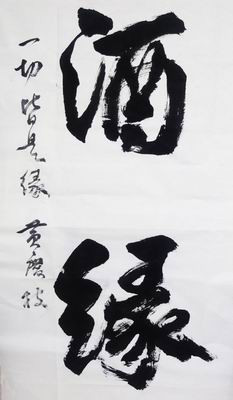 酒缘
一切皆是缘 黄庆